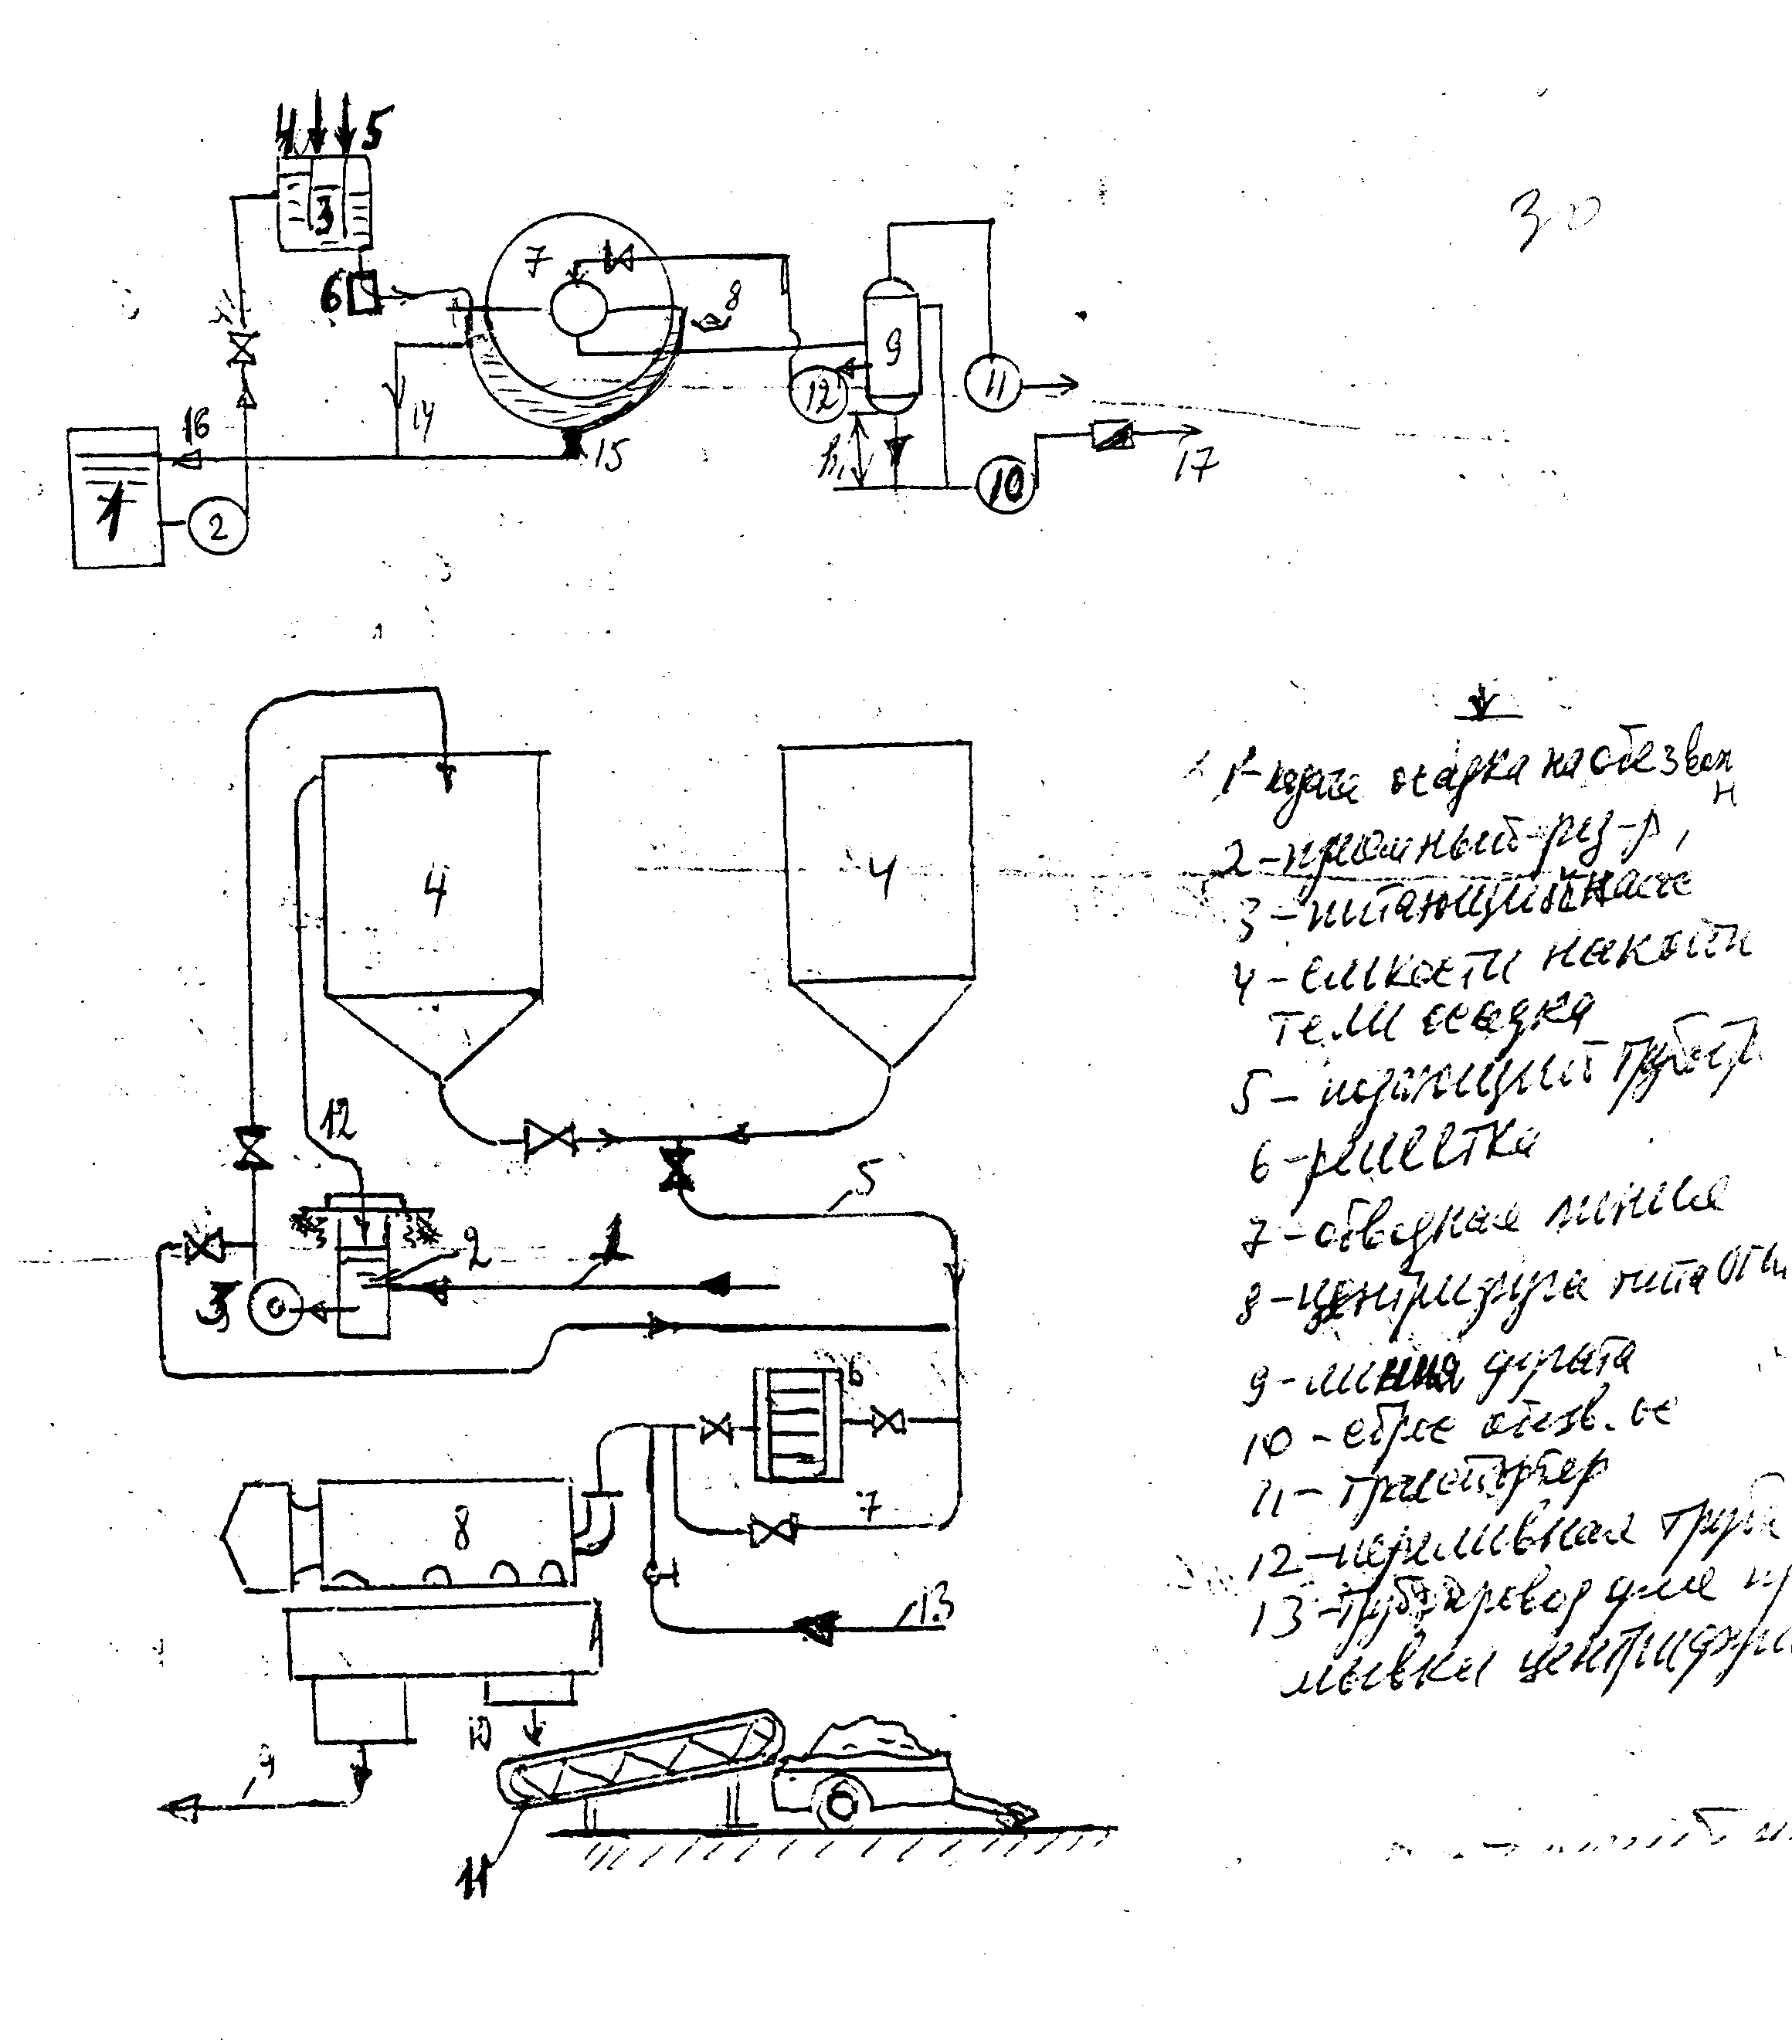 30
4 5
3
6
7
8
9
11
12
10
h₁
14
15
16
17
1
2
4
4
12
5
2
1
3
6
7
8
13
10
9
11
1 - подача осадка на обезвож
н
2 - приемный рез-р,
3 - питающий насос
4 - емкости накопи
тели осадка
5 - подающий трубопр
6 - решетка
7 - обводная линия
8 - центрифуга типа ОГШ
9 - линия фугата
10 - сброс обезв. ос
11 - транспортер
12 - переливная труба
13 - трубопровод для пр
мывки центрифуги